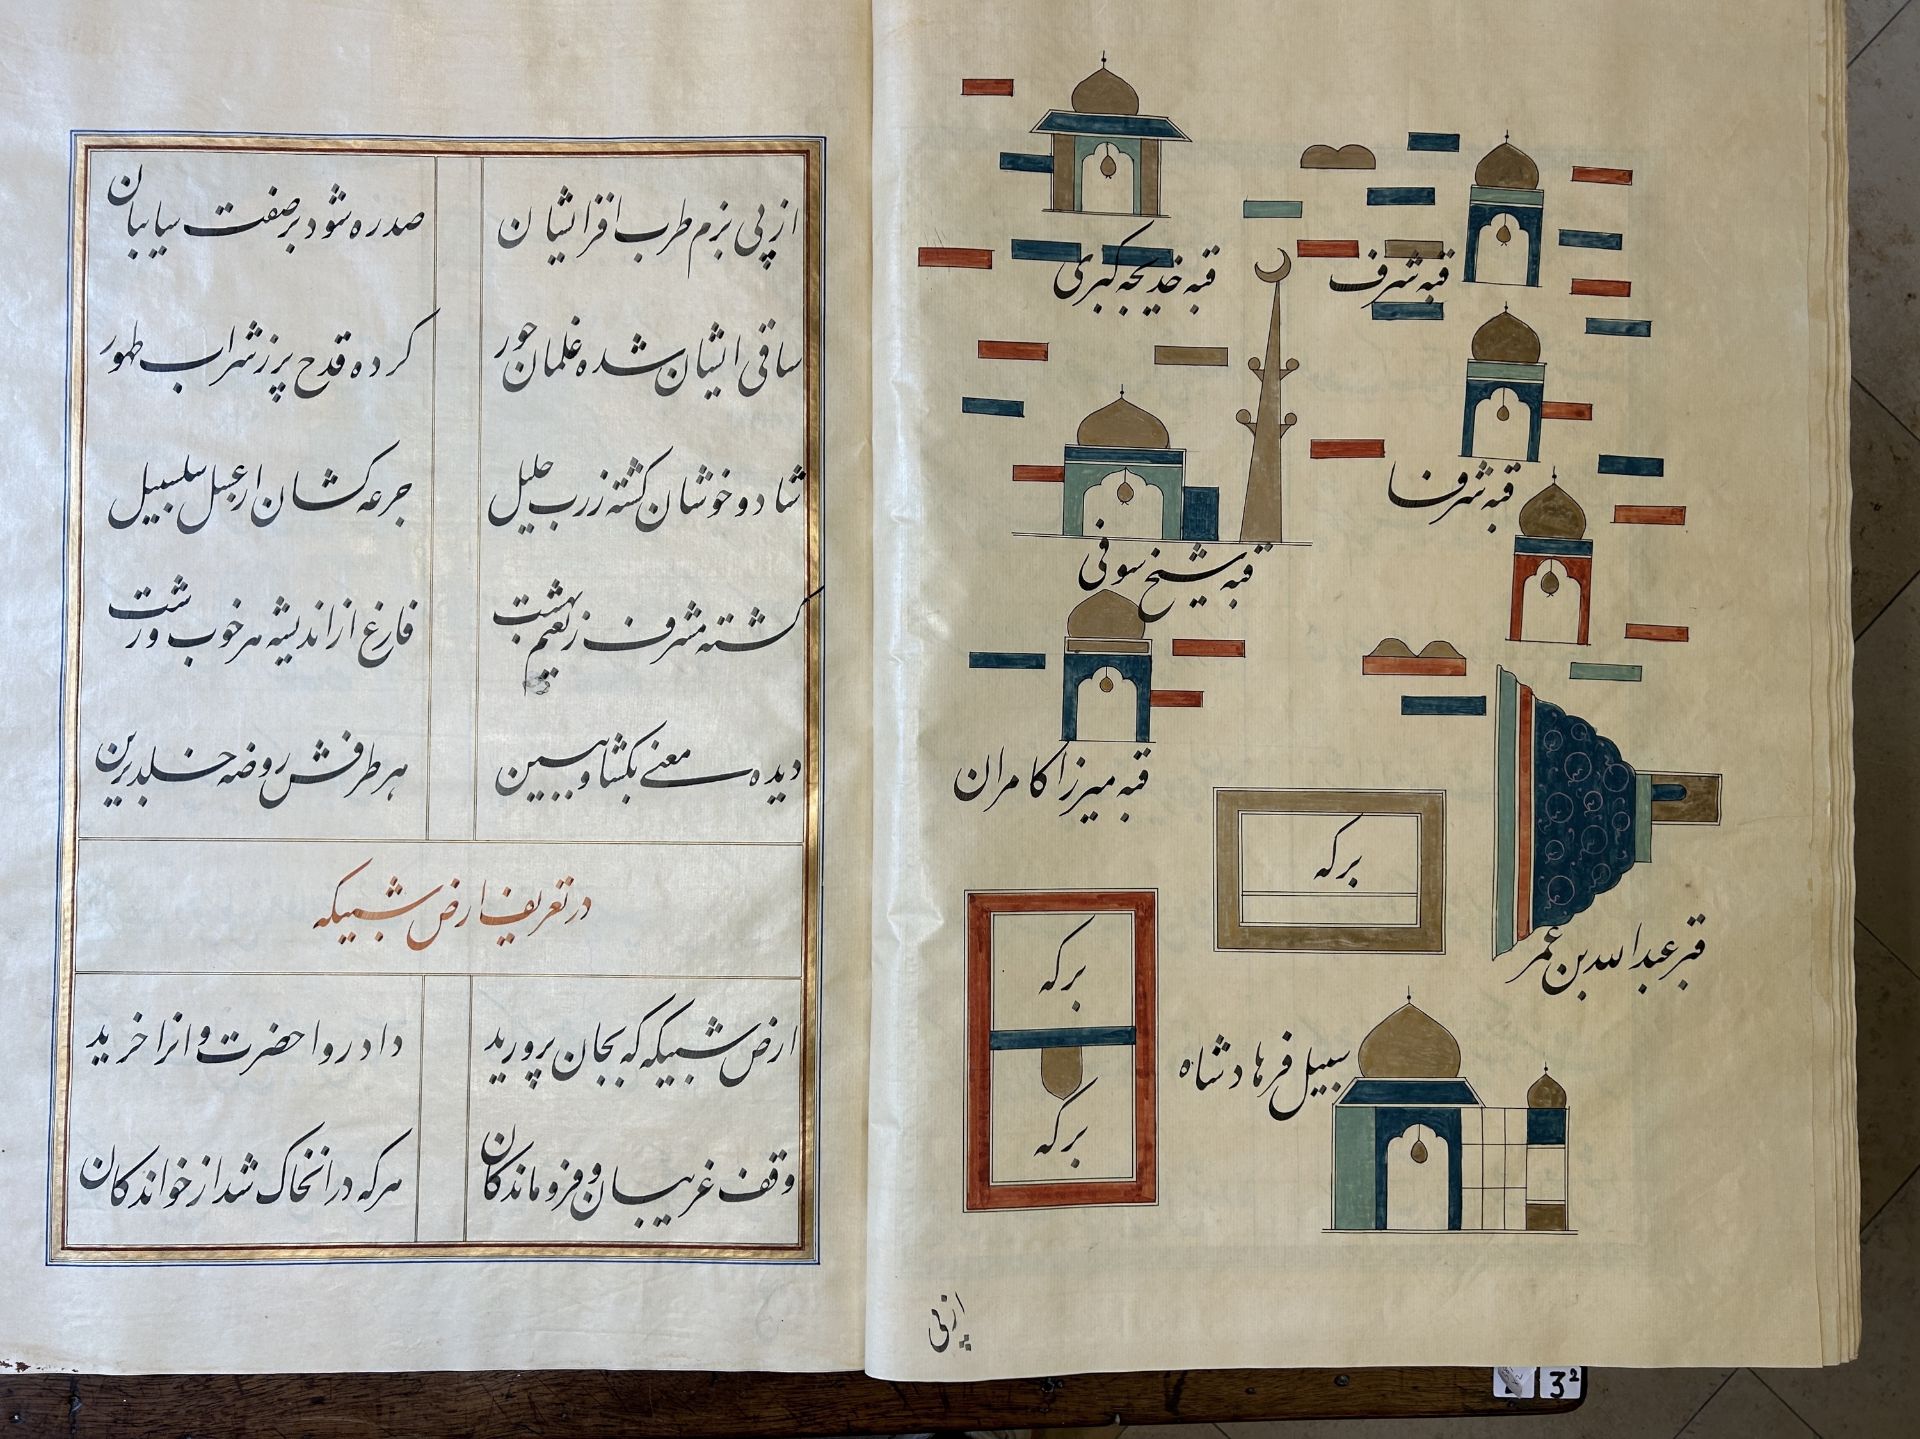 قبه خدیجه کبری
قبه شرف
قبه شرفا
قبه شیخ سوفی
قبه میرزا کامران
برکه
برکه
برکه
قبر عبدالله بن عمر
سبیل فرهاد شاه
از پی
از پی بزم طرب افزایشان
صدره شود بر صفت سایبان
ساقی ایشان شده غلمان حور
کرده قدح پر ز شراب طهور
شاد و خوشان کشته ز رب جلیل
جرعه کشان از عسل سلسبیل
کشته مشرف ز نعیم بهشت
فارغ از اندیشه هر خوب و زشت
دیده معنی بکشا و ببین
هر طرفش روضه خلد برین
در تعریف ارض شبیکه
ارض شبیکه که بجان پرورید
داد روا حضرت و انرا خرید
وقف غریبان و فروماندکان
هر که در انخاک شد از خواندکان
3²